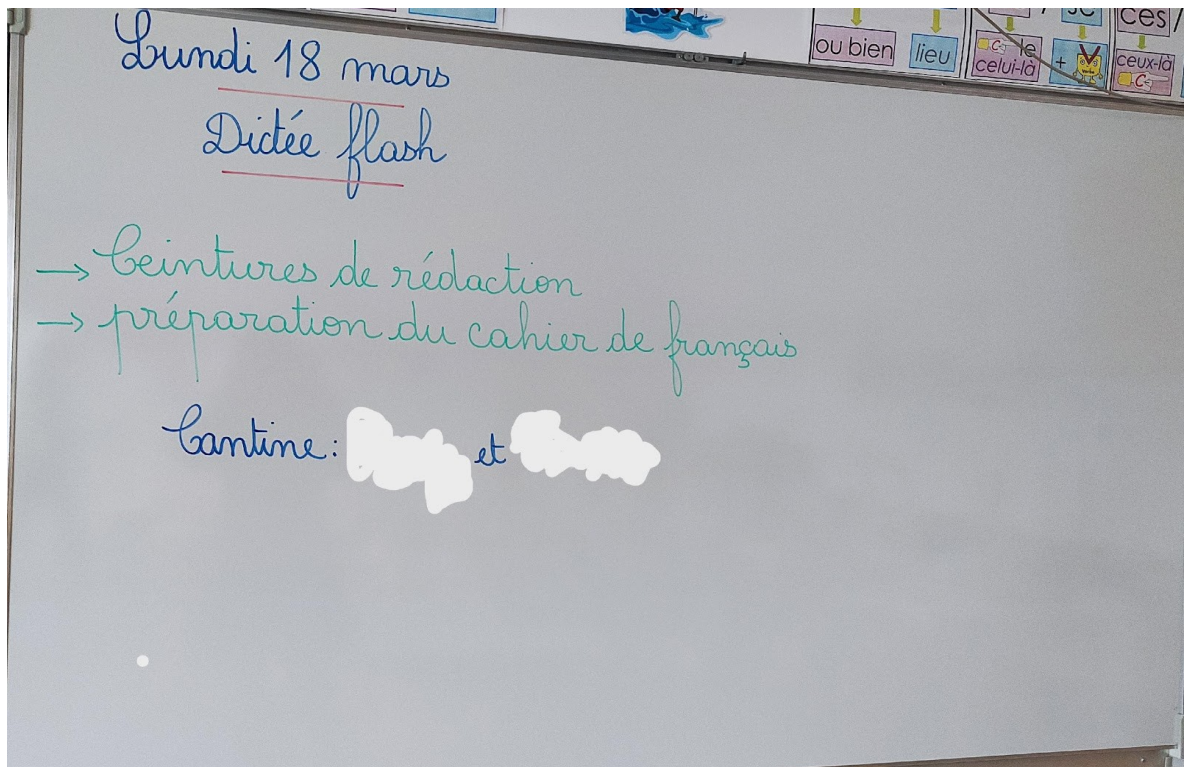 ces/
ou bien lieu le + ceux-là
celui-là
Lundi 18 mars
Dictée flash
→ Ceintures de rédaction
→ préparation du cahier de français
Cantine : et